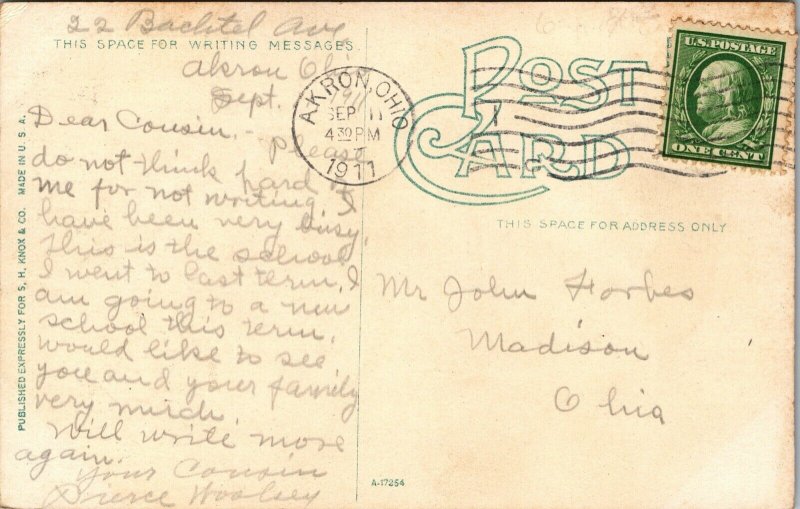 22 Bachtel Ave
THIS SPACE FOR WRITING MESSAGES
Akron Ohio
Sept.
Dear Cousin, -
Please
do not think hard of
me for not writing. I
have been very busy.
this is the school
I went to last term. I
am going to a new
school this term.
would like to see
you and your family
very much
Will write more
again.
Your Cousin
Pierce Woolsey
PUBLISHED EXPRESSLY FOR S. H. KNOX & CO. MADE IN U. S. A.
AKRON, OHIO
SEP 11
4 30 PM
1911
POST
CARD
U.S. POSTAGE
ONE CENT
THIS SPACE FOR ADDRESS ONLY
Mr John Forbes
Madison
Ohio
A-17254